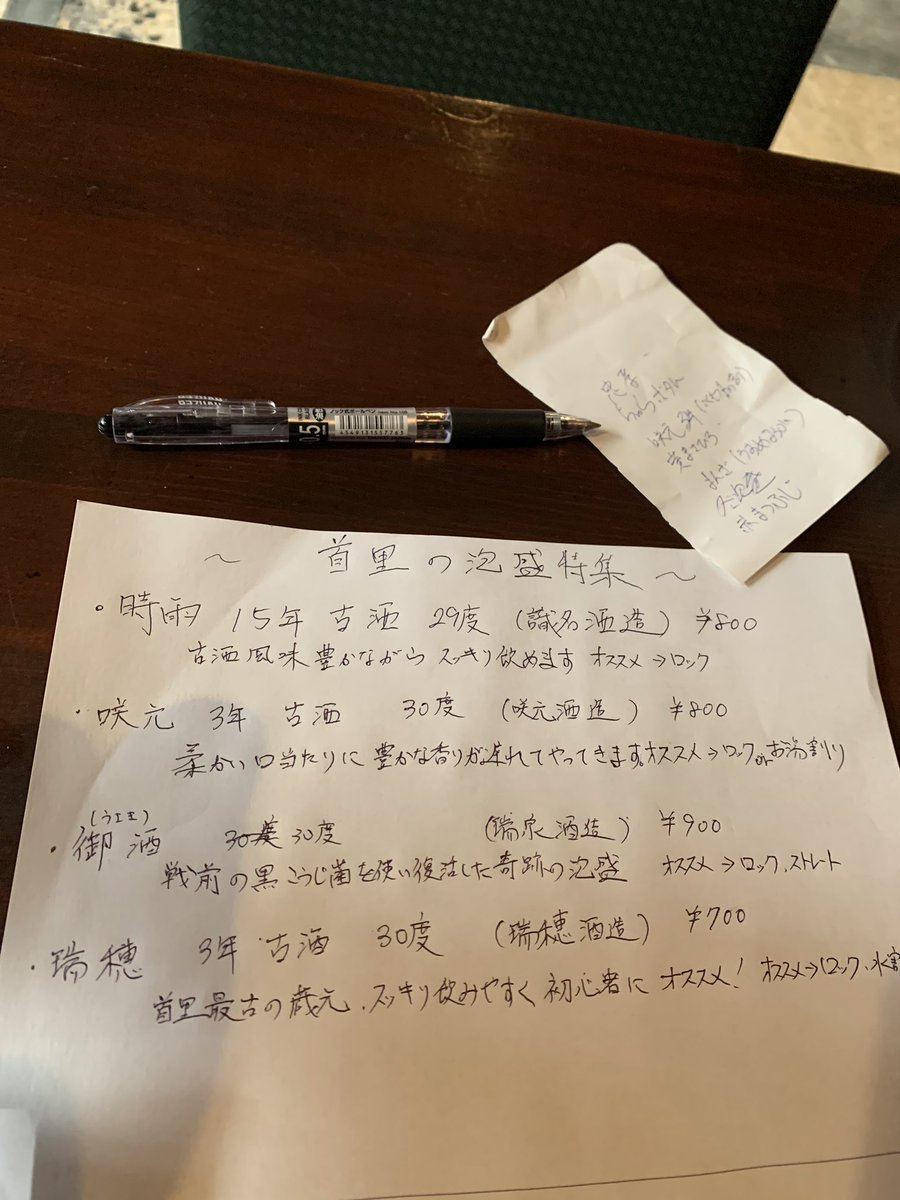 0.5
ノック式ボールペン
4549131557763
忠孝
咲元
まんざ
~ 首里の泡盛特集 ~
・時雨 15年 古酒 29度 (識名酒造) ¥800
古酒風味豊かながら スッキリ飲めます オススメ→ロック
・咲元 3年 古酒 30度 (咲元酒造) ¥800
柔かい口当たりに豊かな香りが遅れてやってきます。オススメ→ロックorお湯割り
(うさき)
・御酒 30度 (瑞泉酒造) ¥900
戦前の黒こうじ菌を使い復活した奇跡の泡盛 オススメ→ロック、ストレート
・瑞穂 3年 古酒 30度 (瑞穂酒造) ¥700
首里最古の蔵元、スッキリ飲みやすく初心者にオススメ! オススメ→ロック、水割